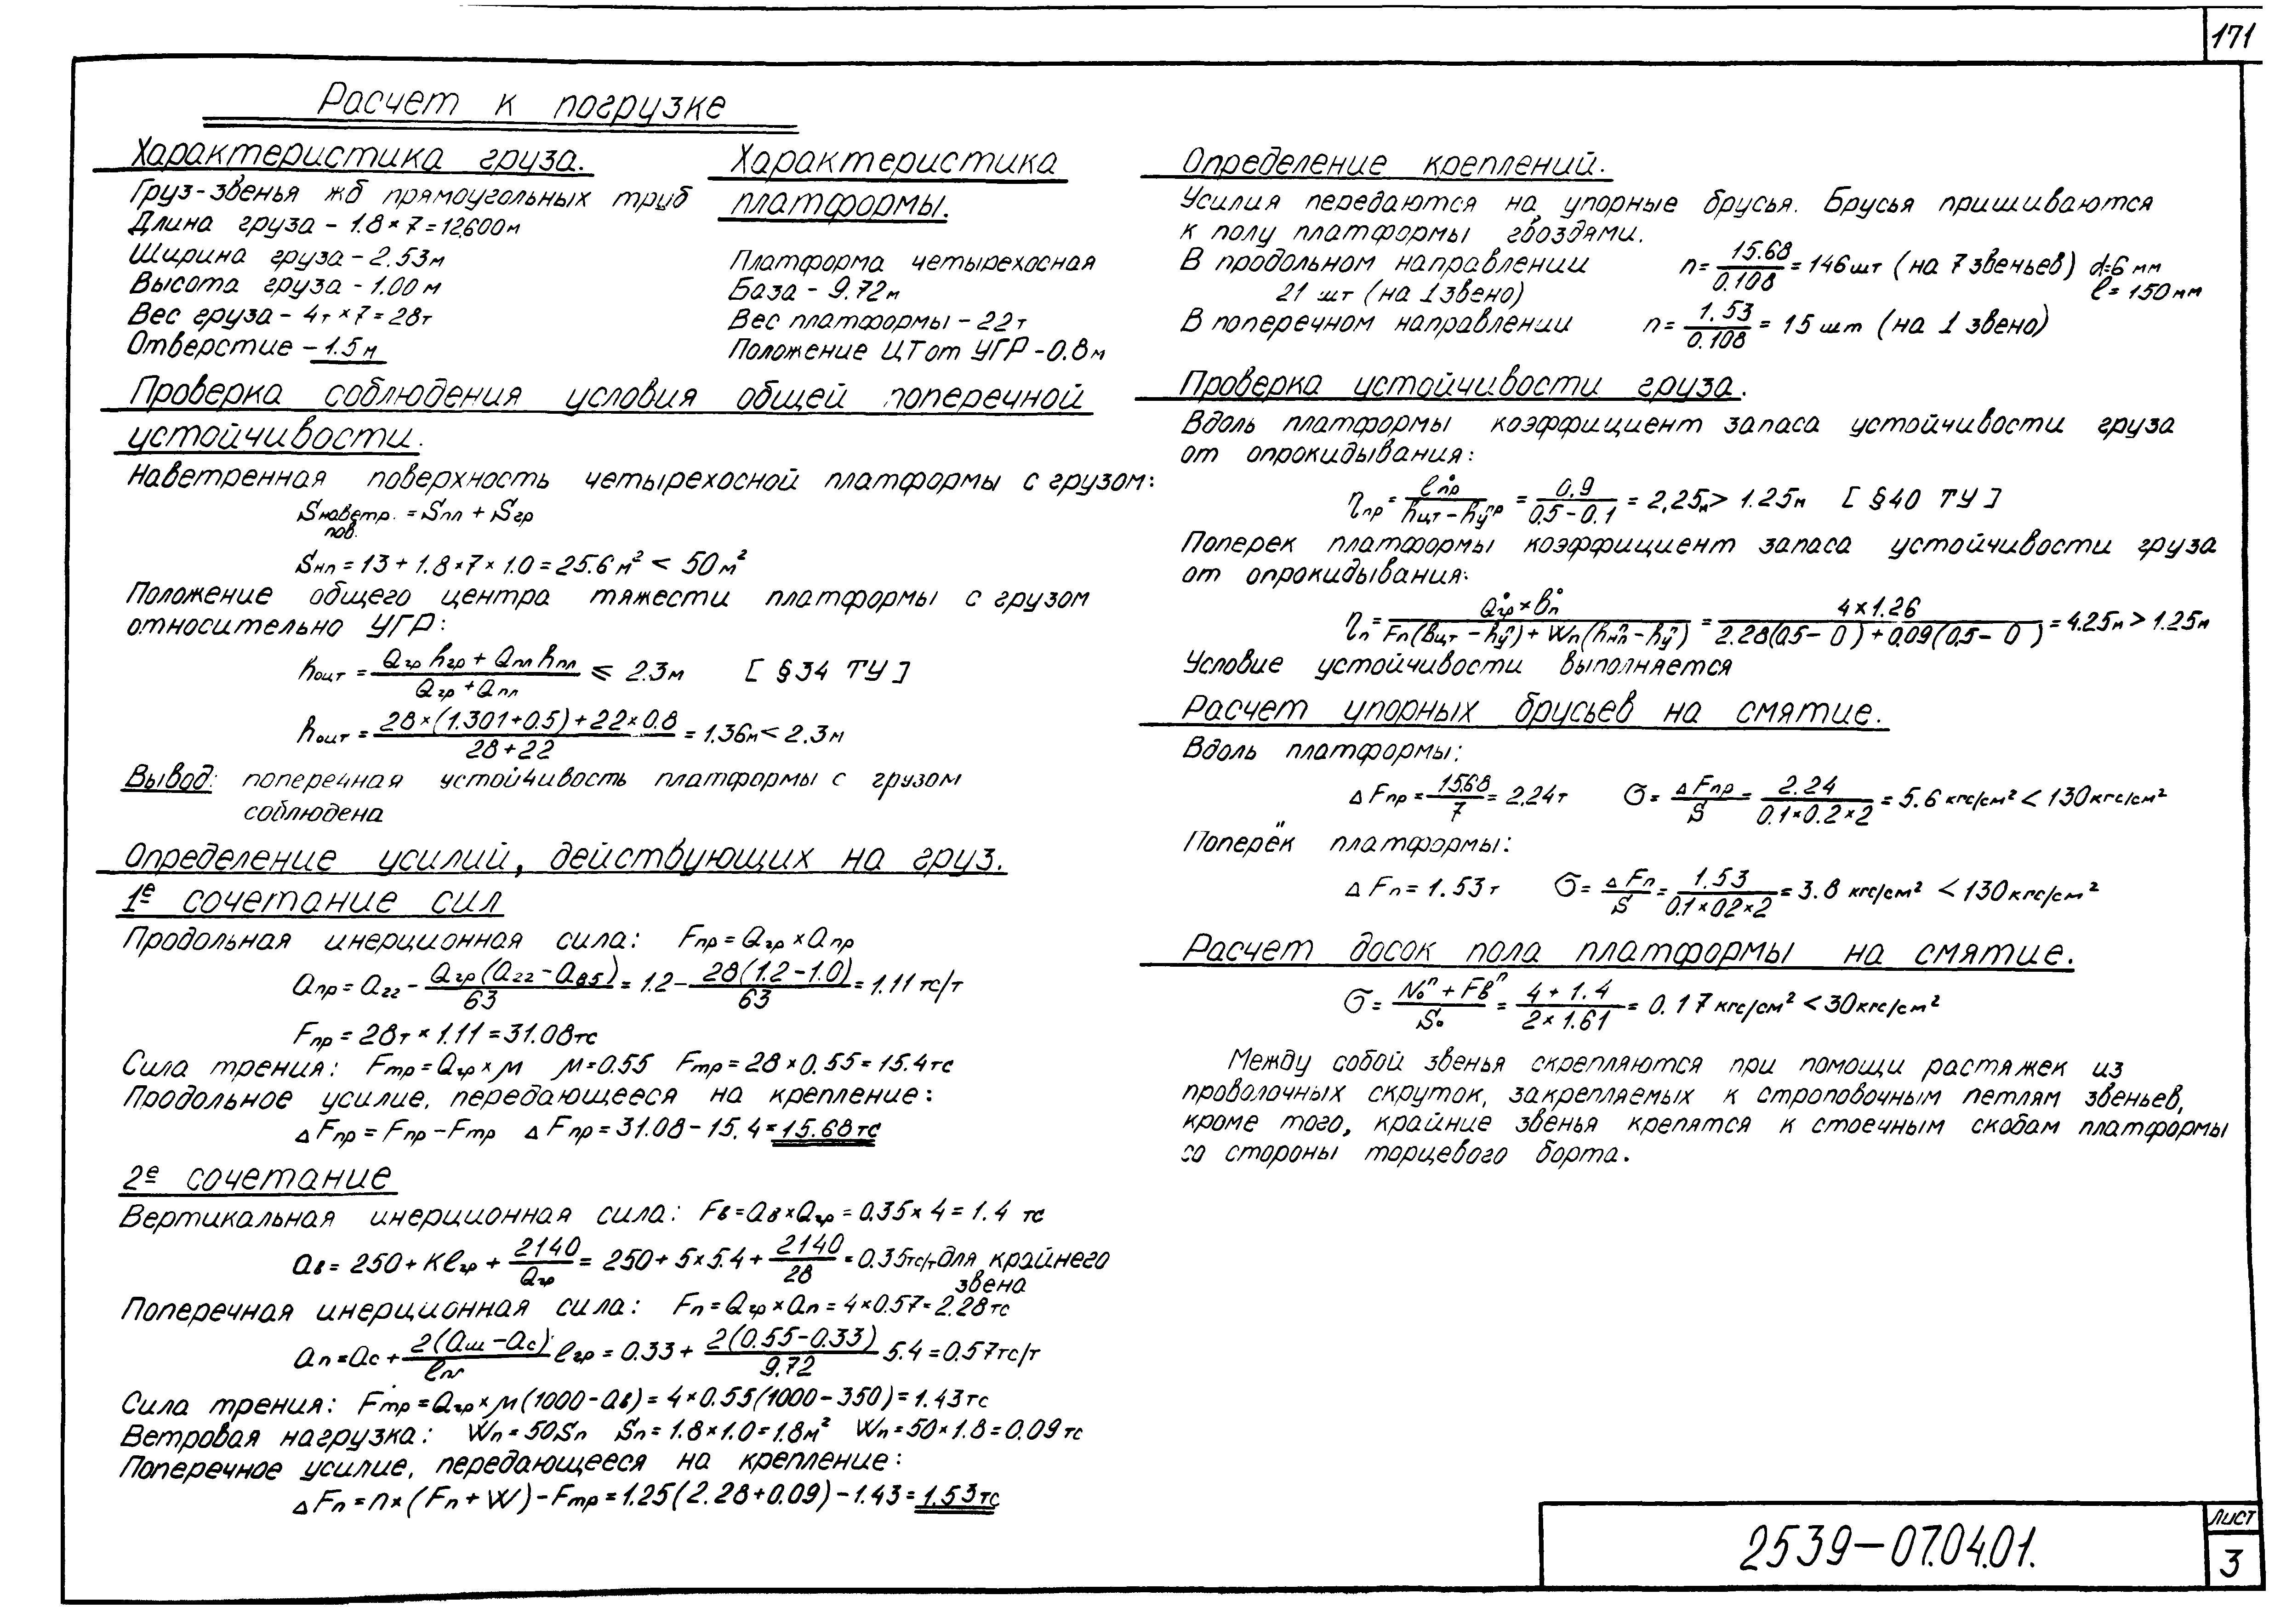 171
Расчет к погрузке
Характеристика груза.
Груз-звенья жб прямоугольных труб
Длина груза – 1.8×7=12,600м
Ширина груза – 2.53м
Высота груза – 1.00м
Вес груза – 4т×7=28т
Отверстие – 1.5м
Характеристика
платформы.
Платформа четырехосная
База – 9.72м
Вес платформы – 22т
Положение ЦТ от УГР – 0.8м
Проверка соблюдения условия общей поперечной
устойчивости.
Наветренная поверхность четырехосной платформы с грузом:
Sнаветр. пов. = Sпл + Sгр
Sнп = 13 + 1.8×7×1.0 = 25.6 м² < 50 м²
Положение общего центра тяжести платформы с грузом
относительно УГР:
hоцт = (Qгр hгр + Qпл hпл) / (Qгр + Qпл) ⩽ 2.3м [ §34 ТУ ]
hоцт = (28×(1.301+0.5)+22×0.8) / (28+22) = 1.36м < 2.3м
Вывод: поперечная устойчивость платформы с грузом
соблюдена
Определение усилий, действующих на груз.
1е сочетание сил
Продольная инерционная сила: Fпр = Qгр × aпр
aпр = a22 – Qгр(a22 – a85) / 63 = 1.2 – 28(1.2 – 1.0) / 63 = 1.11 тс/т
Fпр = 28т × 1.11 = 31.08тс
Сила трения: Fтр = Qгр × м м = 0.55 Fтр = 28×0.55 = 15.4тс
Продольное усилие, передающееся на крепление:
ΔFпр = Fпр – Fтр ΔFпр = 31.08 – 15.4 = 15.68тс
2е сочетание
Вертикальная инерционная сила: Fв = aв × Qгр = 0.35×4 = 1.4 тс
aв = 250 + Кℓгр + 2140 / Qгр = 250 + 5×5.4 + 2140 / 28 = 0.35тс/т для крайнего
звена
Поперечная инерционная сила: Fп = Qгр × aп = 4×0.57 = 2.28тс
aп = aс + 2(aш – aс) / ℓпл ℓгр = 0.33 + 2(0.55 – 0.33) / 9.72 5.4 = 0.57тс/т
Сила трения: Fтр = Qгр × м(1000 – aв) = 4×0.55(1000 – 350) = 1.43тс
Ветровая нагрузка: Wп = 50Sп Sп = 1.8×1.0 = 1.8м² Wп = 50×1.8 = 0.09тс
Поперечное усилие, передающееся на крепление:
ΔFп = n×(Fп + W) – Fтр = 1.25(2.28 + 0.09) – 1.43 = 1.53тс
Определение креплений.
Усилия передаются на упорные брусья. Брусья пришиваются
к полу платформы гвоздями.
В продольном направлении n = 15.68 / 0.108 = 146шт (на 7 звеньев) d=6 мм
21 шт (на 1 звено) ℓ=150мм
В поперечном направлении n = 1.53 / 0.108 = 15 шт (на 1 звено)
Проверка устойчивости груза.
Вдоль платформы коэффициент запаса устойчивости груза
от опрокидывания:
ηпр = ℓ°пр / (hцт – hупр) = 0.9 / (0.5 – 0.1) = 2,25м > 1.25м [ §40 ТУ ]
Поперек платформы коэффициент запаса устойчивости груза
от опрокидывания:
ηп = Q°гр × в°п / (Fп(вцт – hуп) + Wп(hнпп – hуп)) = 4×1.26 / (2.28(0,5 – 0) + 0,09(0,5 – 0)) = 4.25м > 1.25м
Условие устойчивости выполняется
Расчет упорных брусьев на смятие.
Вдоль платформы:
ΔFпр = 15.68 / 7 = 2,24т σ = ΔFпр / S = 2.24 / 0.1×0.2×2 = 5.6 кгс/см² < 130кгс/см²
Поперёк платформы:
ΔFп = 1.53т σ = ΔFп / S = 1.53 / 0.1×02×2 = 3.8 кгс/см² < 130кгс/см²
Расчет досок пола платформы на смятие.
σ = (N₀п + Fвп) / S₀ = (4 + 1.4) / 2×1.61 = 0.17 кгс/см² < 30кгс/см²
Между собой звенья скрепляются при помощи растяжек из
проволочных скруток, закрепляемых к строповочным петлям звеньев,
кроме того, крайние звенья крепятся к стоечным скобам платформы
со стороны торцевого борта.
2539–07.04.01.
Лист
3